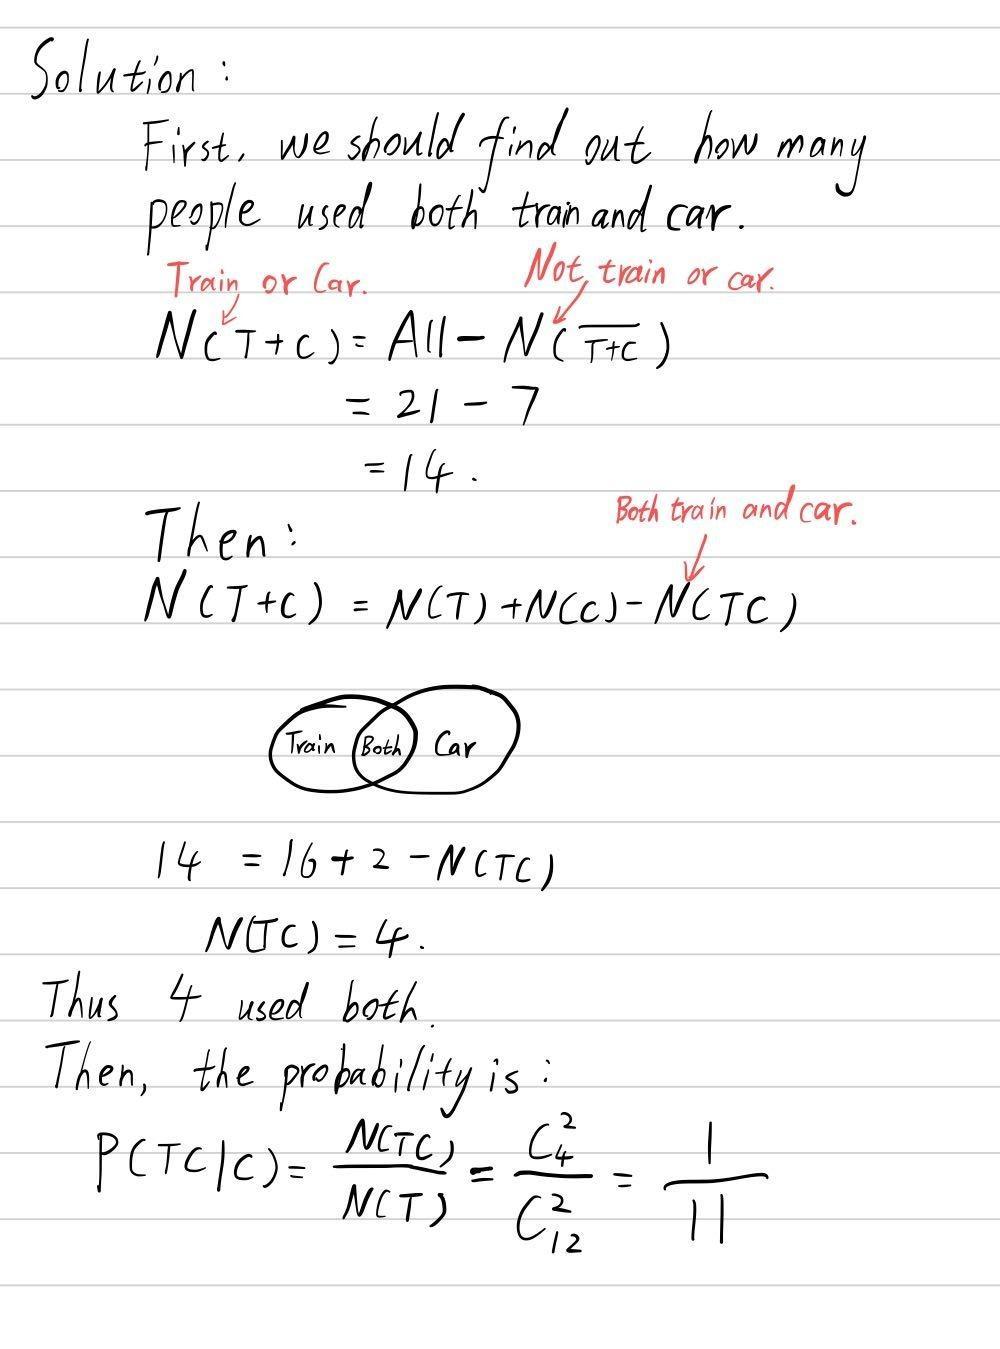 Solution:
First, we should find out how many
people used both train and car.
Train or Car.
Not train or car.
N(T+C) = All - N(\overline{T+C})
= 21 - 7
= 14.
Then:
Both train and car.
N(T+C) = N(T) + N(C) - N(TC)
Train Both Car
14 = 16 + 2 - N(TC)
N(TC) = 4.
Thus 4 used both.
Then, the probability is:
P(TC|C) = N(TC)/N(T) = C_4^2/C_12^2 = 1/11